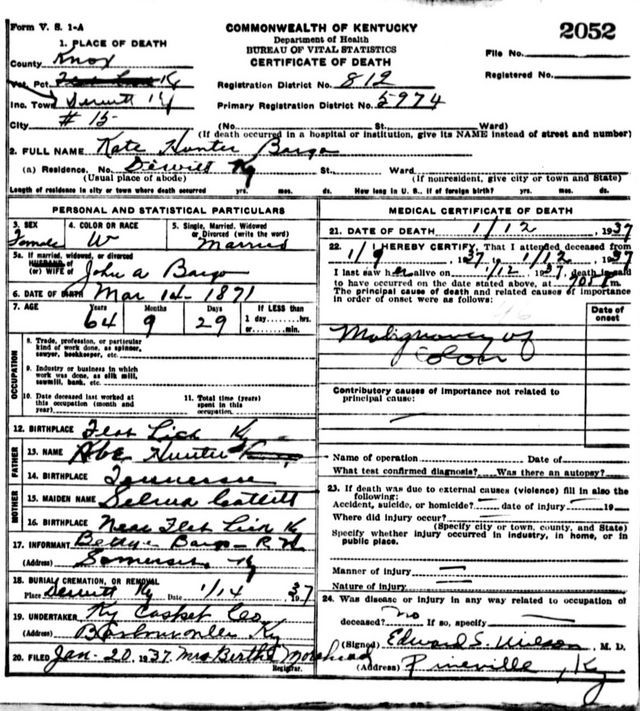 Form V. S. 1-A
COMMONWEALTH OF KENTUCKY
Department of Health
BUREAU OF VITAL STATISTICS
CERTIFICATE OF DEATH
2052
File No.
Registered No.
1. PLACE OF DEATH
County Knox
Vot. Pct. Flat Lick Ky
Inc. Town Dewitt Ky
City # 15-
Registration District No. 812
Primary Registration District No. 5974
(No. St. Ward)
(If death occurred in a hospital or institution, give its NAME instead of street and number)
2. FULL NAME Kate Hunter Bargo
(a) Residence. No. Dewitt Ky St., Ward.
(Usual place of abode) (If nonresident, give city or town and State)
Length of residence in city or town where death occurred yrs. mos. ds. How long in U. S., if of foreign birth? yrs. mos. ds.
PERSONAL AND STATISTICAL PARTICULARS
3. SEX Female
4. COLOR OR RACE W
5. Single, Married, Widowed or Divorced (write the word) Married
5a. If married, widowed, or divorced
HUSBAND of
(or) WIFE of John a Bargo
6. DATE OF BIRTH Mar 14-1871
7. AGE Years 64 Months 9 Days 29
If LESS than
1 day.......hrs.
or.......min.
OCCUPATION
8. Trade, profession, or particular kind of work done, as spinner, sawyer, bookkeeper, etc.
9. Industry or business in which work was done, as silk mill, sawmill, bank, etc.
10. Date deceased last worked at this occupation (month and year)
11. Total time (years) spent in this occupation.
12. BIRTHPLACE Flat Lick Ky
FATHER
13. NAME Abe Hunter
14. BIRTHPLACE Tennessee
MOTHER
15. MAIDEN NAME Selma Catlett
16. BIRTHPLACE Near Flat Lick K
17. INFORMANT Bargo R N
(Address) Somerset Ky
18. BURIAL, CREMATION, OR REMOVAL
Place Dewitt Ky Date 1/14 1937
19. UNDERTAKER Ky Casket Co
(Address) Barbourville Ky
20. FILED Jan-20, 1937. Mrs Bertha Morehead
Registrar.
MEDICAL CERTIFICATE OF DEATH
21. DATE OF DEATH 1/12, 1937
22. I HEREBY CERTIFY, That I attended deceased from
1/9 1937 to 1/12, 1937
I last saw her alive on 1/12, 1937, death is said
to have occurred on the date stated above, at m.
The principal cause of death and related causes of importance
in order of onset were as follows:
Date of onset
Malignancy of
Colon
Contributory causes of importance not related to
principal cause:
Name of operation Date of
What test confirmed diagnosis? Was there an autopsy?
23. If death was due to external causes (violence) fill in also the
following:
Accident, suicide, or homicide? date of injury 19
Where did injury occur?
(Specify city or town, county, and State)
Specify whether injury occurred in industry, in home, or in
public place.
Manner of injury
Nature of injury
24. Was disease or injury in any way related to occupation of
deceased? no If so, specify
(Signed) Edward S. Wilson, M. D.
(Address) Pineville, Ky.